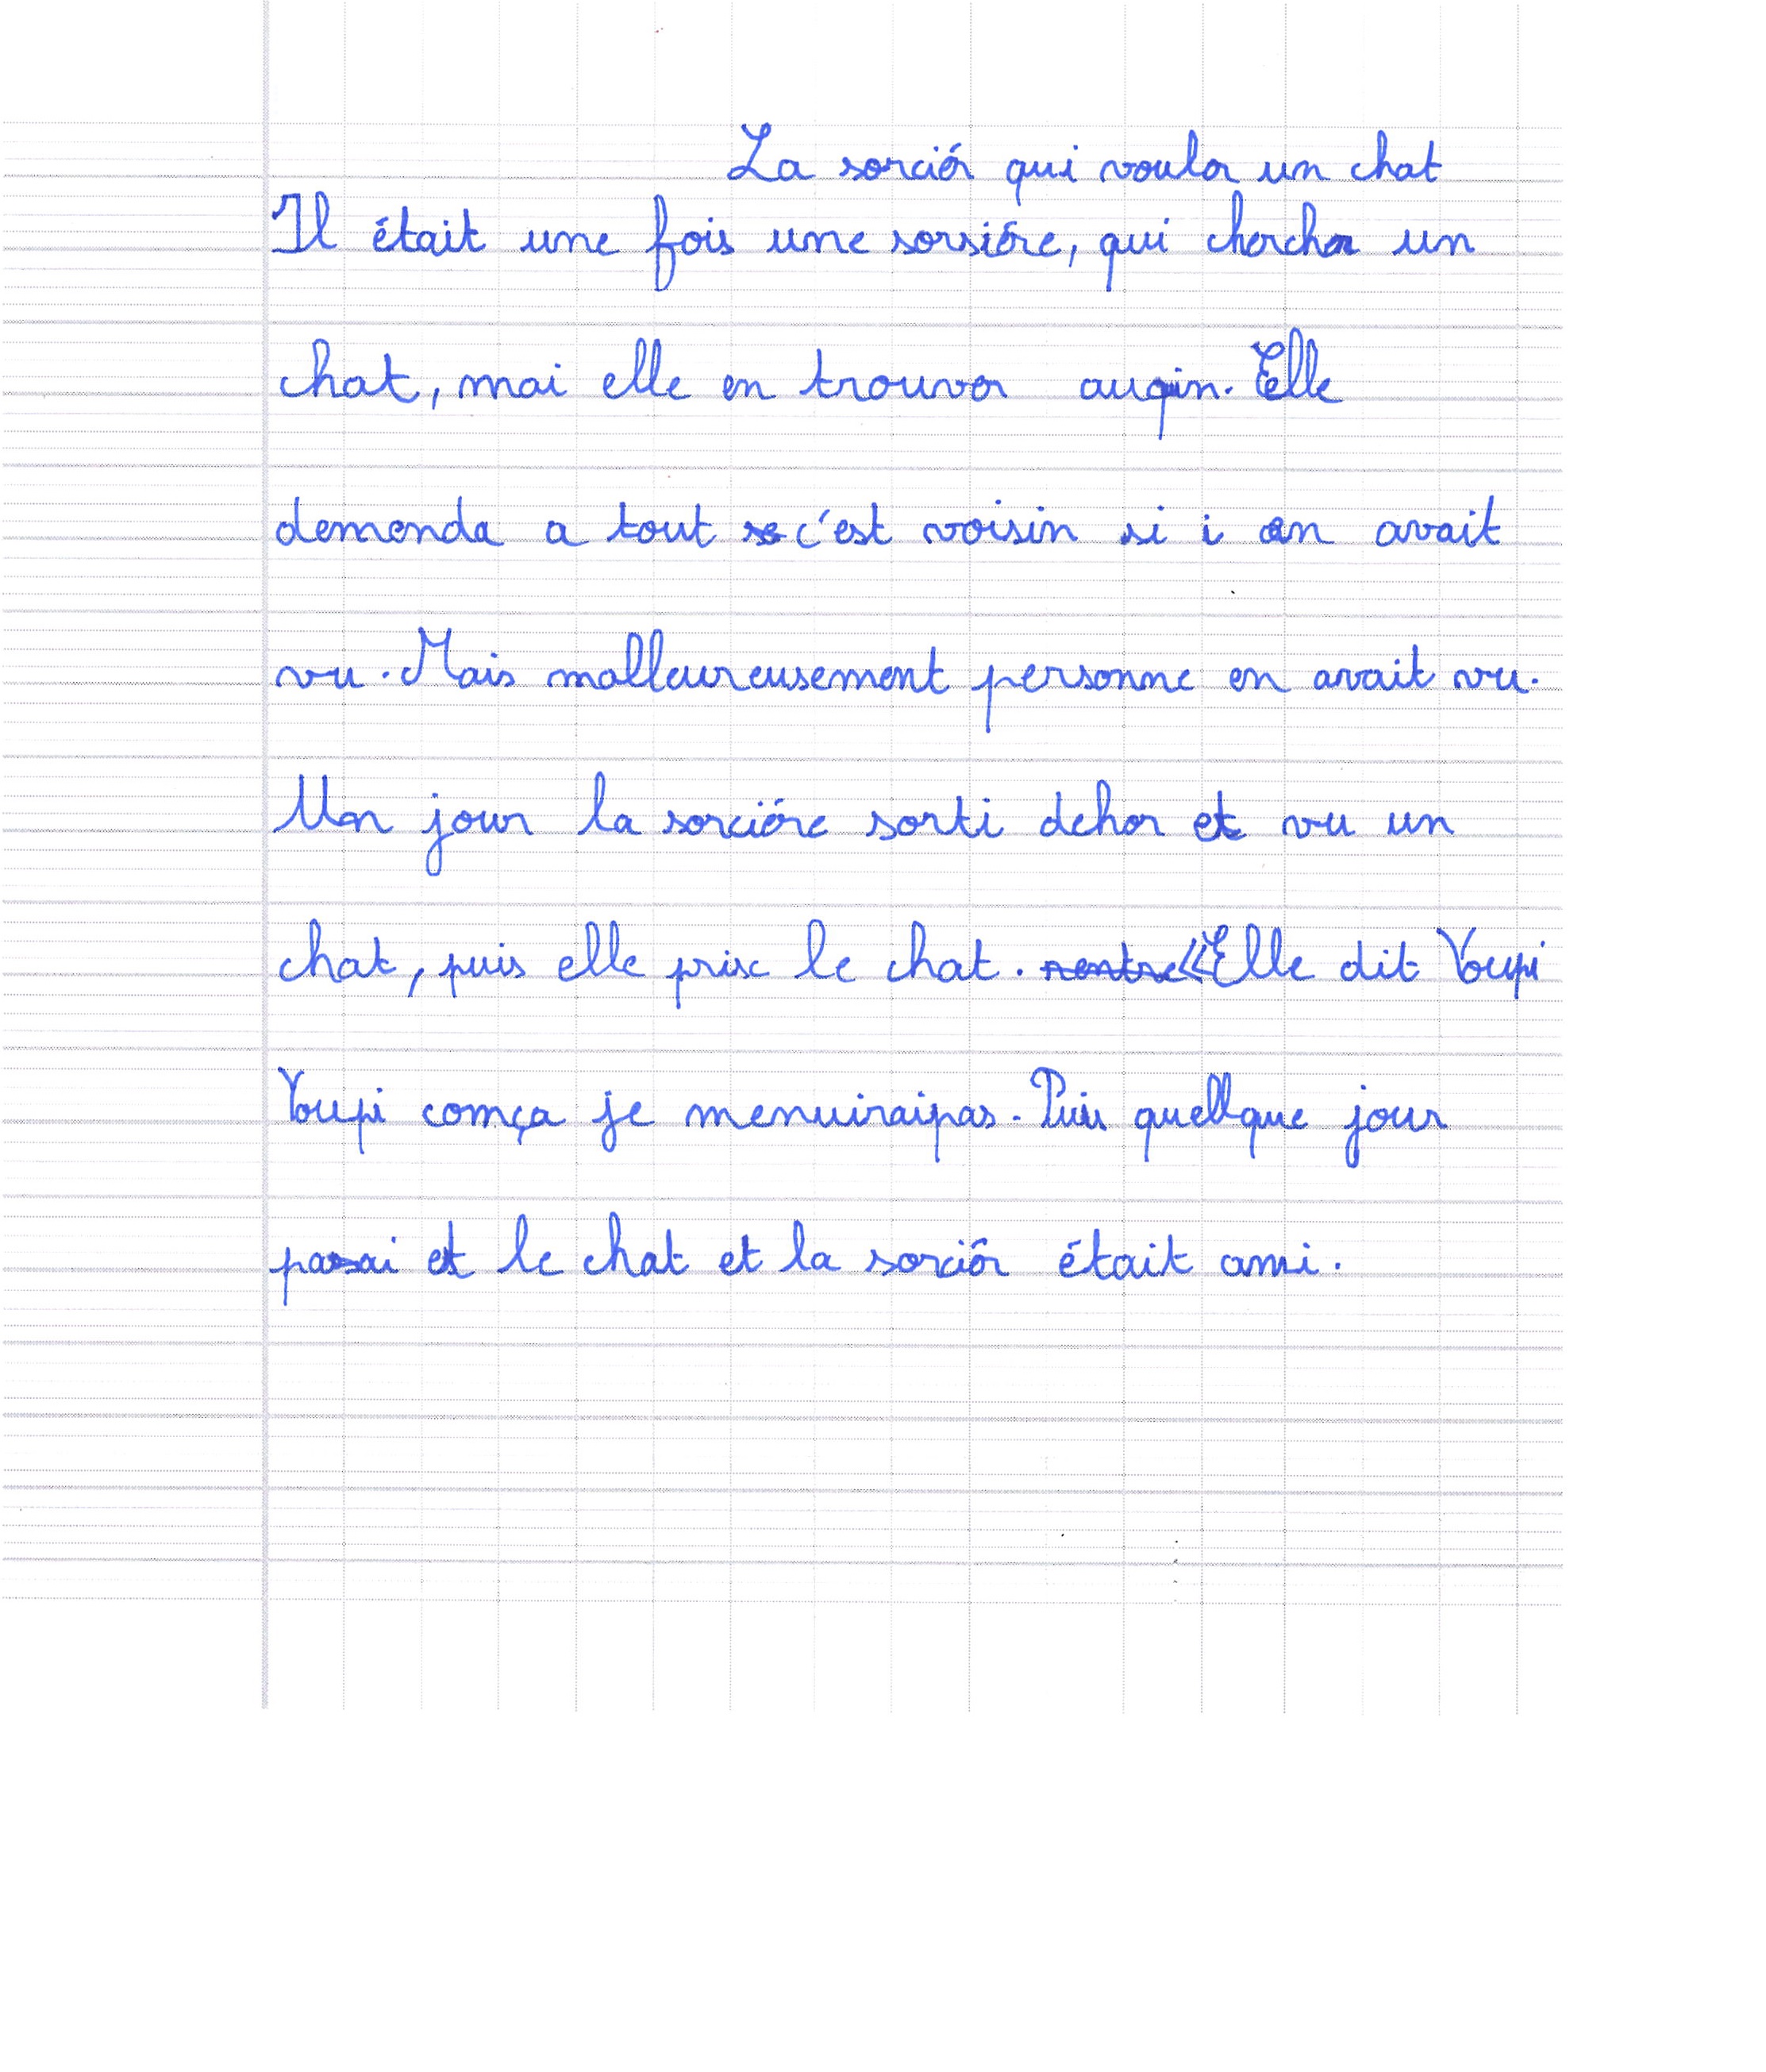 La sorciér qui vouler un chat
Il était une fois une sorsiére, qui chercher un
chat, mai elle en trouver auqin. Elle
demenda a tout c'est voisin si i en avait
vu. Mais malleureusement personne en avait vu.
Un jour la sorciére sorti dehor et vu un
chat, puis elle prise le chat. rentre «Elle dit Youpi
Youpi comça je menuiraipas. Puis quellque jour
pasai et le chat et la sorciér était ami.